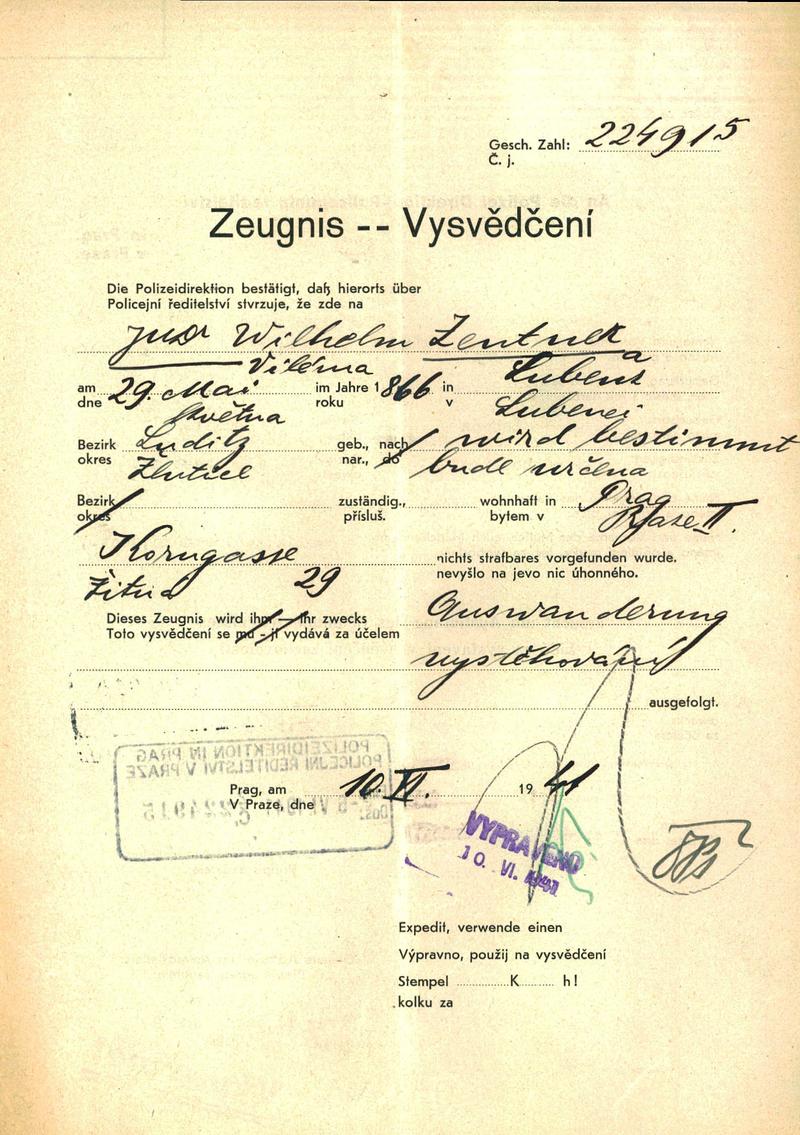 Gesch. Zahl: 224915
Č. j.
Zeugnis -- Vysvědčení
Die Polizeidirektion bestätigt, daß hierorts über
Policejní ředitelství stvrzuje, že zde na
JUDr Wilhelm Zentner
Viléma a
am 29. Mai im Jahre 1866 in Lubenz
dne května roku v Lubenci
Bezirk Luditz geb., nach wird bestimmt
okres Žlutice nar., do bude určena
Bezirk zuständig., wohnhaft in Prag
okres přísluš. bytem v Praze II.
Korngasse nichts strafbares vorgefunden wurde.
Žitná 29 nevyšlo na jevo nic úhonného.
Dieses Zeugnis wird ihm — ihr zwecks Auswanderung
Toto vysvědčení se mu - jí vydává za účelem
vystěhování
ausgefolgt.
POLIZEIDIREKTION IN PRAG
POLICEJNÍ ŘEDITELSTVÍ V PRAZE
Prag, am 10. VI. 1941
V Praze, dne
224915
VYPRAVENO
10. VI. 1941
Expedit, verwende einen
Výpravno, použij na vysvědčení
Stempel K h!
kolku za